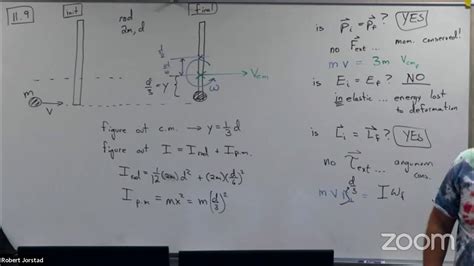 11.9
init
rod
2m, d
final
d/6
d/3 = y
ω
V cm
m
v
figure out c.m. → y = 1/3 d
figure out I = I rod + I p.m.
I rod = 1/12 (2m) d² + (2m)(d/6)²
I p.m = mx² = m(d/3)²
is P⃗i = P⃗f ? YES
no F⃗ext ... mom. conserved!
m v = 3m V cmf
is Ei = Ef ? NO
inelastic ... energy lost
to deformation
is L⃗i = L⃗f ? YES
no τ⃗ext ...
cons.
d/3
m v R = I ωf
Robert Jorstad
zoom